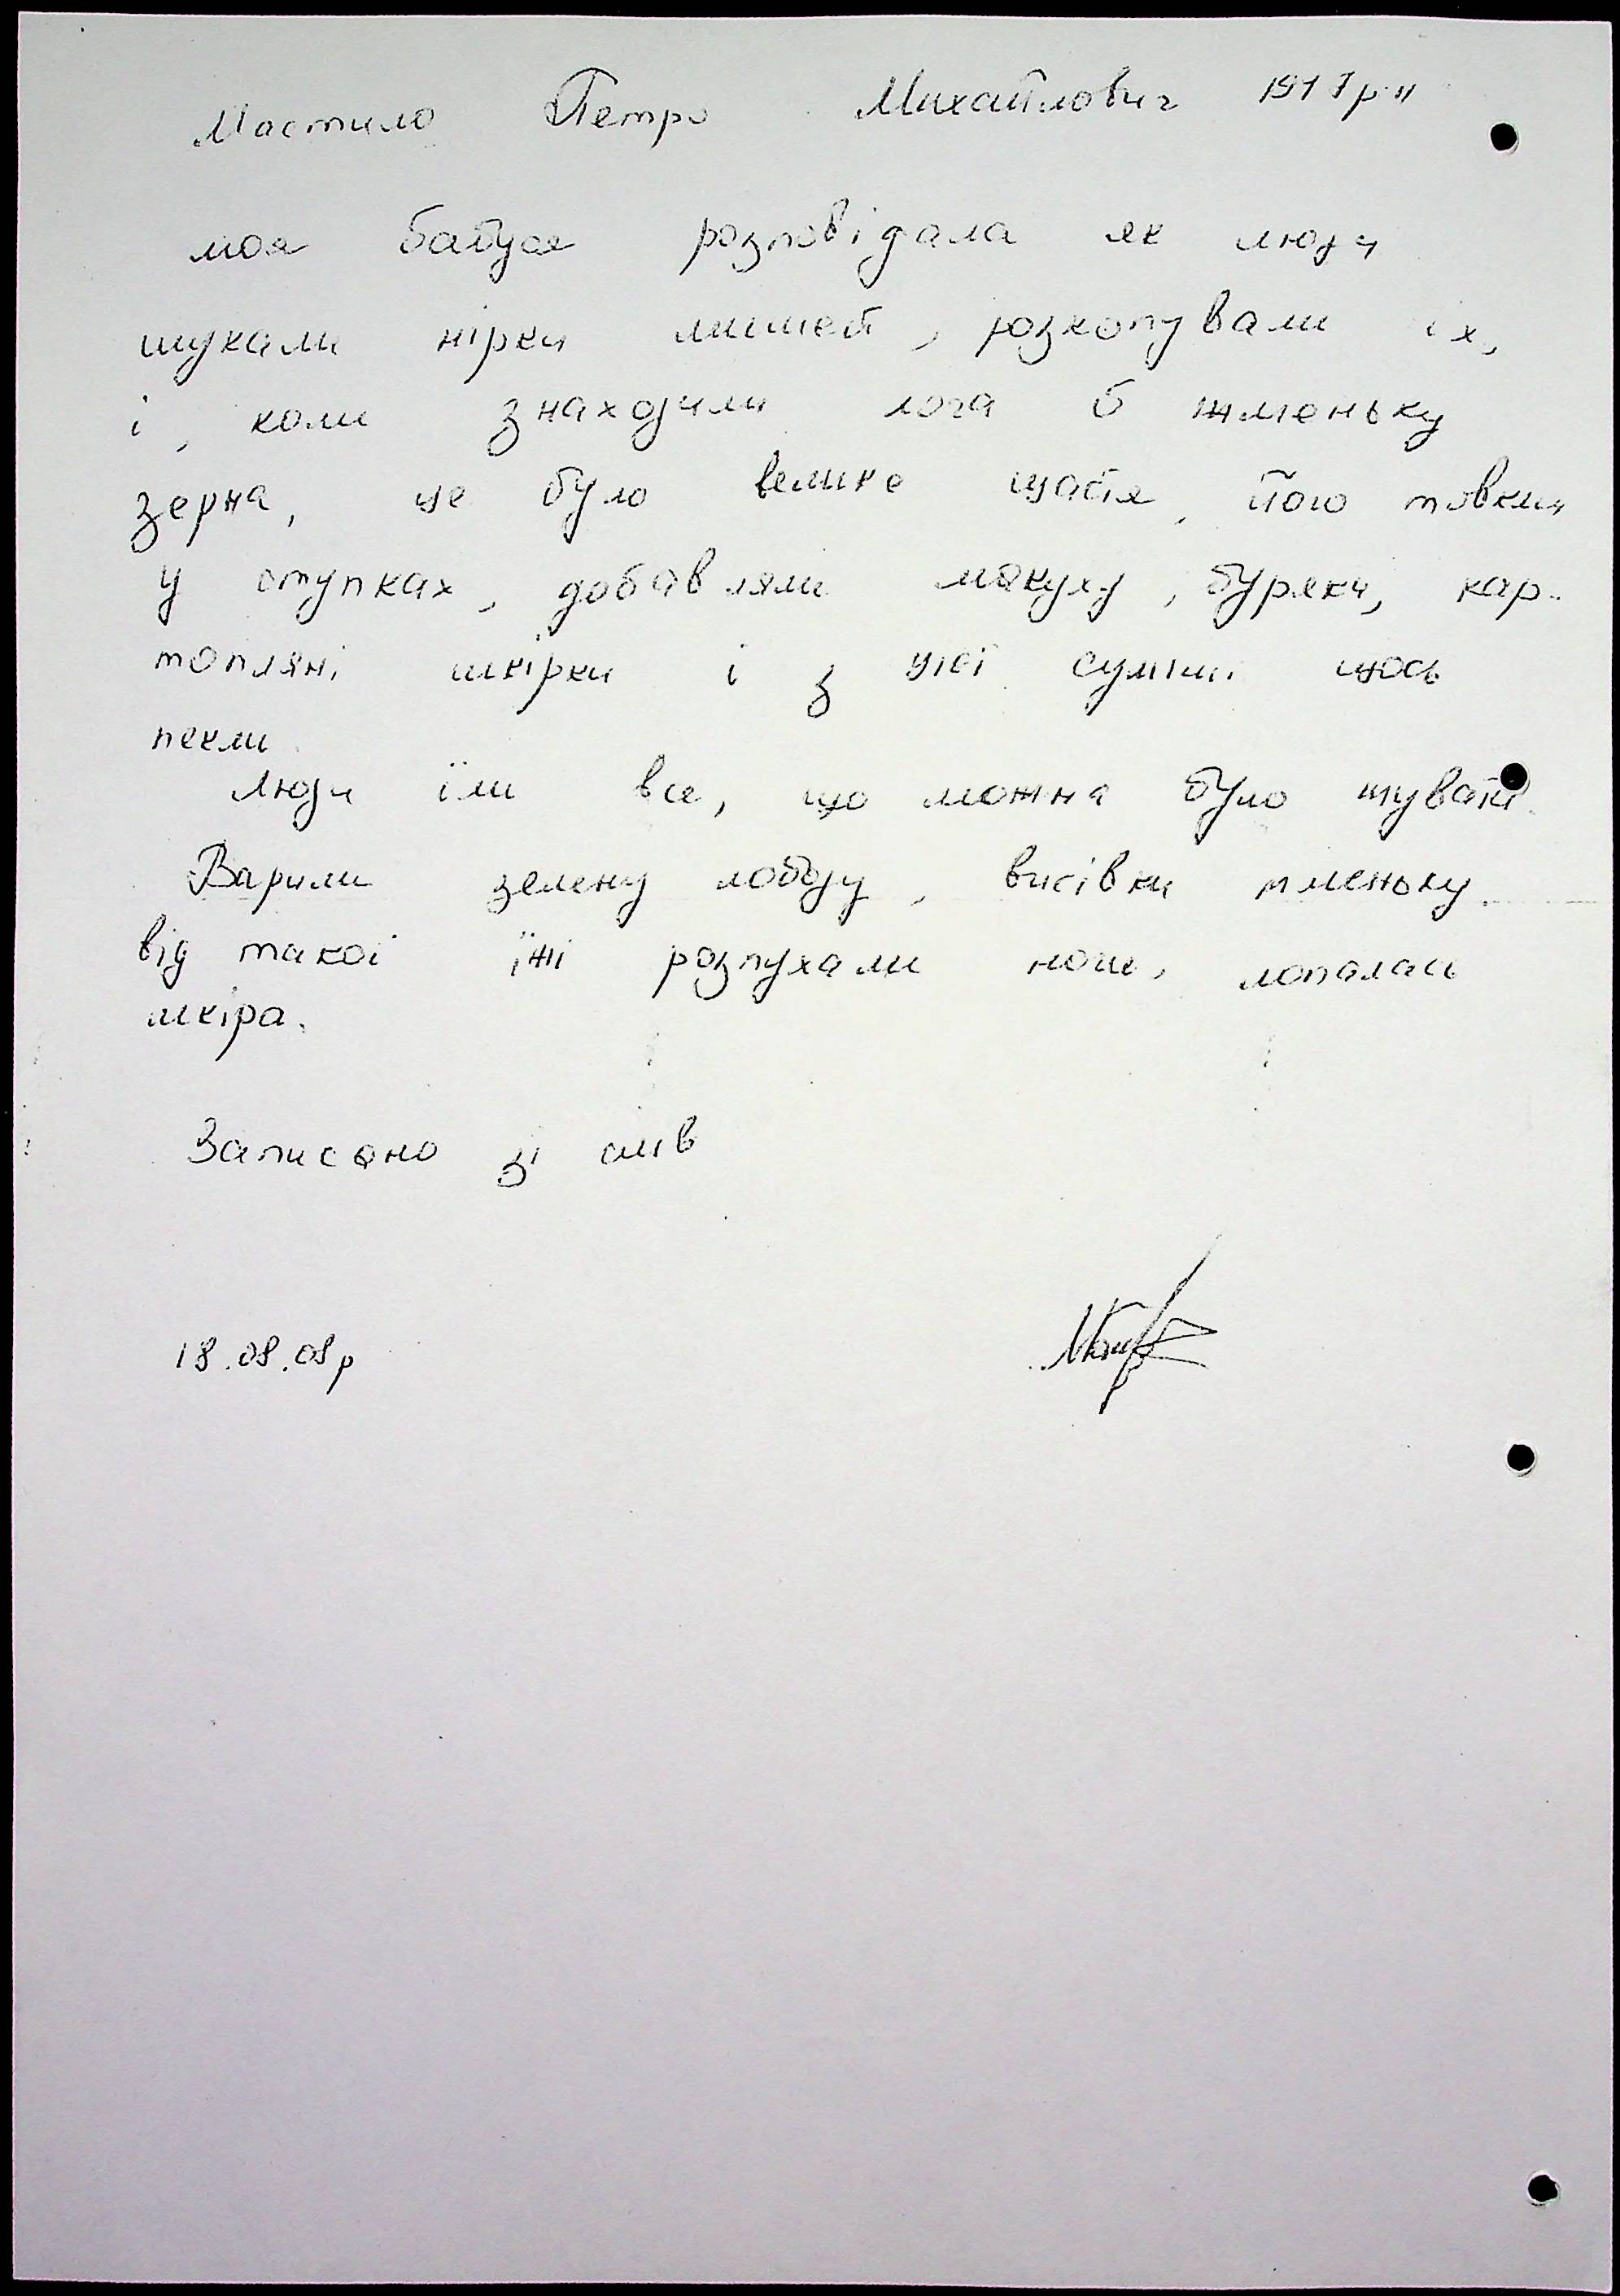 Мастило Петро Михайлович 1917 р.н
моя бабуся розповідала як люди
шукали нірки мишей, розкопували їх,
і, коли знаходили хоча б жменьку
зерна, це було велике щастя, його товкли
у ступках, добавляли макуху, буряки, кар-
топляні шкірки і з цієї суміші щось
пекли
Люди їли все, що можна було жувати.
Варили зелену лободу, висівки жменьку.
від такої їжі розпухали ноги, лопалась
шкіра.
Записано зі слів
18.08.08р